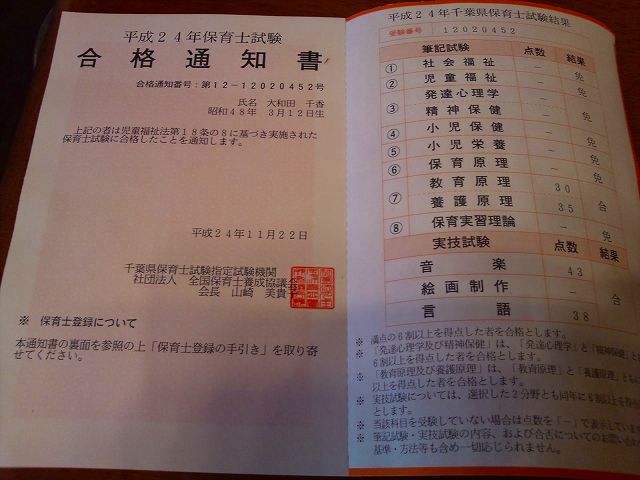 平成24年保育士試験
合格通知書
合格通知番号:第12-12020452号
氏名 大和田 千香
昭和48年 3月12日生
上記の者は児童福祉法第18条の8に基づき実施された
保育士試験に合格したことを通知します。
平成24年11月22日
千葉県保育士試験指定試験機関
社団法人 全国保育士養成協議会
会長 山崎 美貴子
※ 保育士登録について
本通知書の裏面を参照の上「保育士登録の手引き」を取り寄
せてください。
平成24年千葉県保育士試験結果
受験番号 12020452
筆記試験 点数 結果
① 社会福祉 － 免
② 児童福祉 － 免
③ 発達心理学 －
精神保健 － 免
④ 小児保健 － 免
⑤ 小児栄養 － 免
⑥ 保育原理 － 免
⑦ 教育原理 30
養護原理 35 合
⑧ 保育実習理論 － 免
実技試験 点数 結果
音楽 43
絵画制作 － 合
言語 38
※ 満点の6割以上を得点した者を合格とします。
※ 「発達心理学及び精神保健」は、「発達心理学」と「精神保健」と
6割以上を得点した者を合格とします。
※ 「教育原理及び養護原理」は、「教育原理」と「養護原理」ともに
以上を得点した者を合格とします。
※ 実技試験については、選択した2分野とも同一年に6割以上を得点
とします。
※ 当該科目を受験していない場合は点数を「－」で表示しています
※ 筆記試験・実技試験の内容、および合否についてのお問い
基準・方法等も含め一切応じられません。